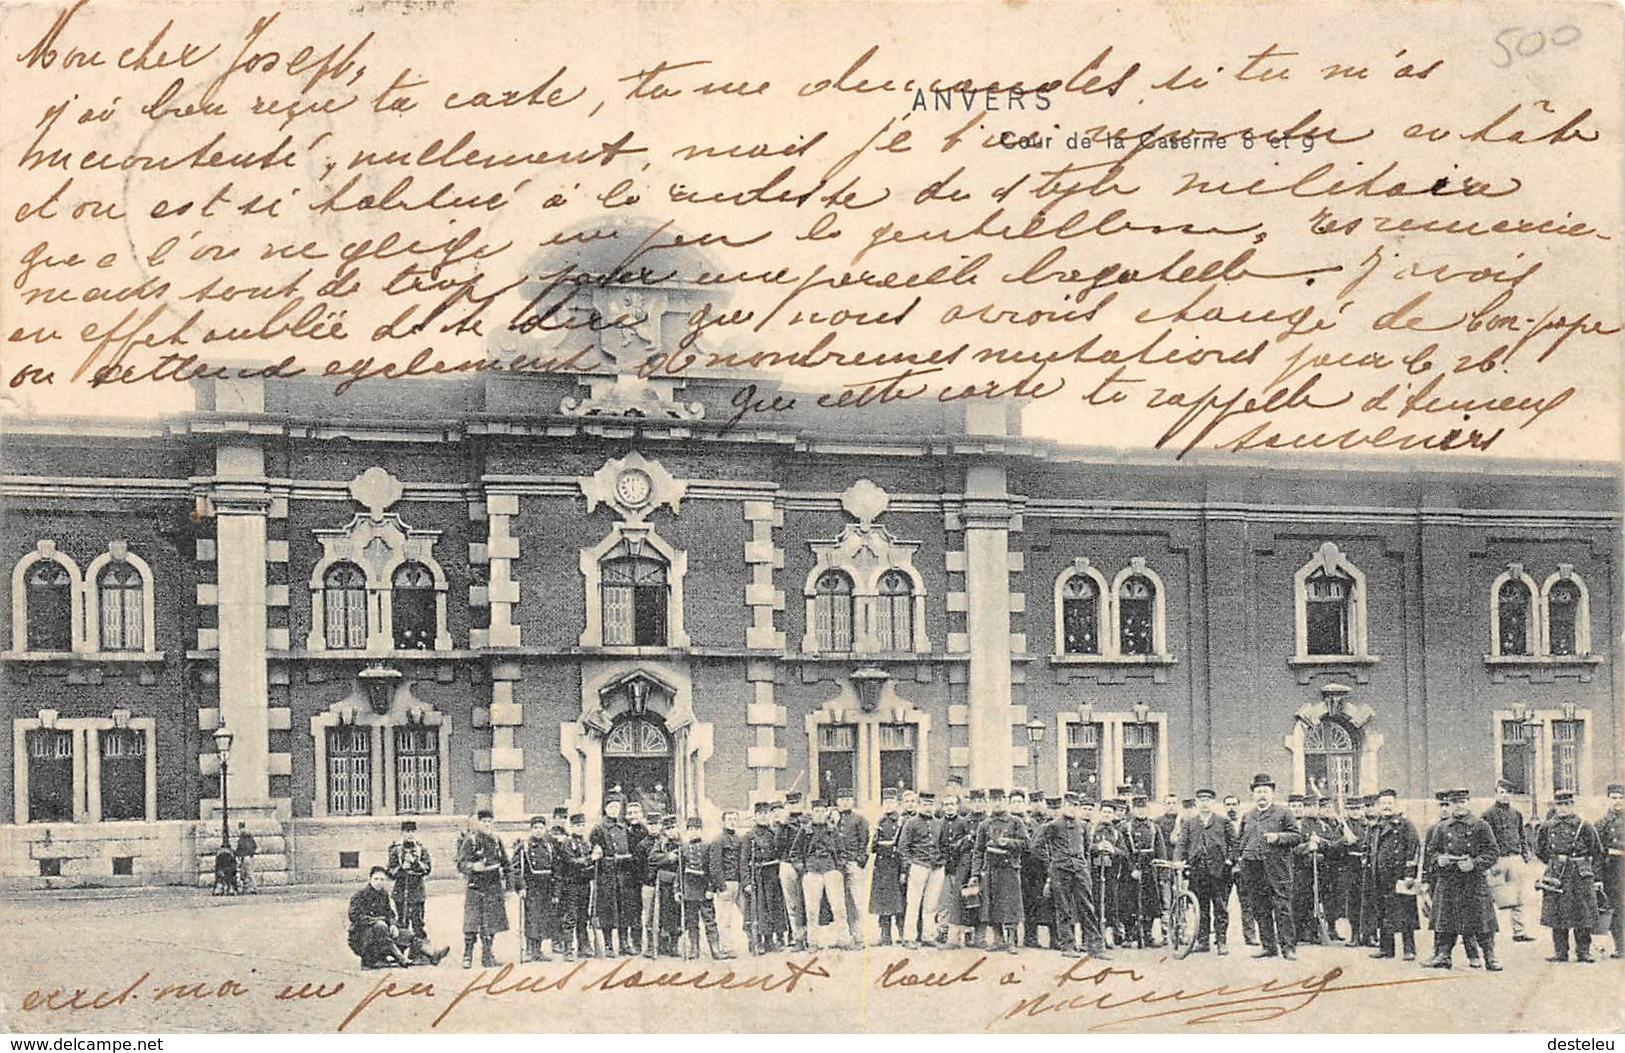 500
ANVERS
Cour de la Caserne 8 et 9
Mon cher Joseph,
j'ai bien reçu ta carte, tu me demandes si tu m'as
mécontenté, nullement, mais je t'ai répondu en hâte
et on est si habitué à la rudesse du style militaire
que l'on néglige un peu la gentillesse, tes remercie-
ments sont de trop pour une pareille bagatelle. J'avais
en effet oublié de te dire que nous avions changé de bon-papa
on attend également de nombreuses mutations pour le 26.
que cette carte te rappelle d'heureux
souvenirs
écris-moi un peu plus souvent. tout à toi
www.delcampe.net
desteleu